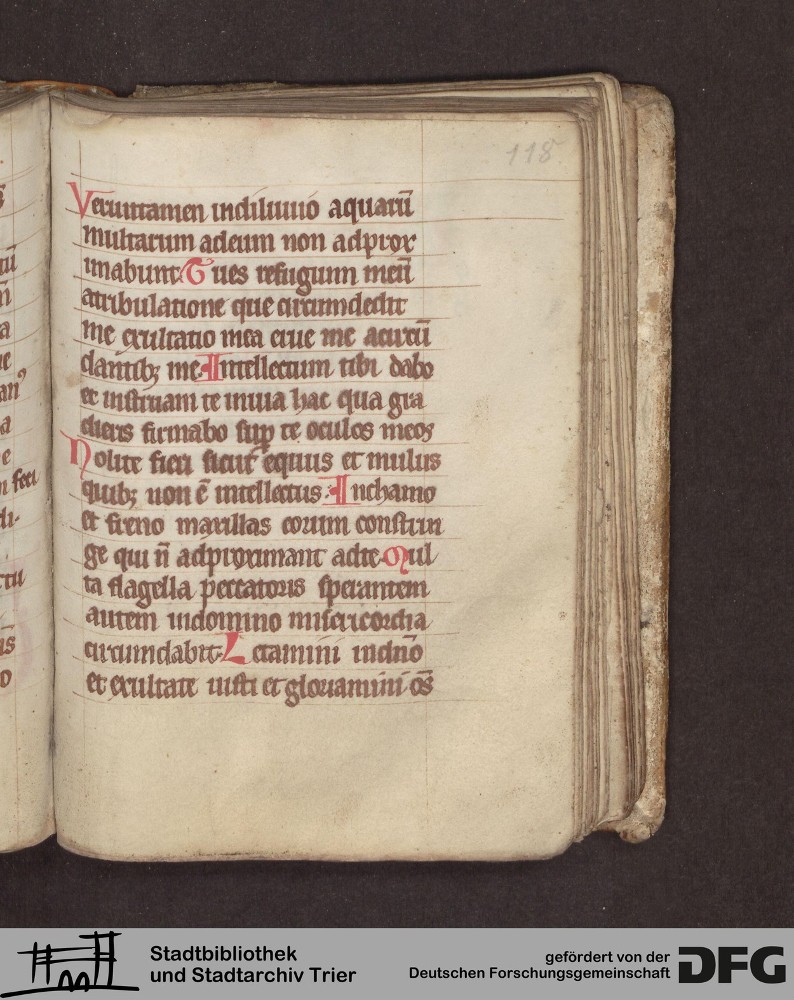 118
Veruntamen indiluuio aquarū
multarum adeum non adprox
imabunt. Tu es refugium meū
atribulatione que circumdedit
me exultatio mea erue me acircū
dantibꝫ me. Intellectum tibi dabo
et instruam te inuia hac qua gra
dieris firmabo sup te oculos meos
Nolite fieri sicut equus et mulus
quibꝫ non ē intellectus. Inchamo
et freno maxillas eorum constrin
ge qui n̄ adproximant adte. Mul
ta flagella peccatoris sperantem
autem indomino misericordia
circumdabit. Letamini indn̄o
et exultate iusti et gloriamini oēs
Stadtbibliothek
und Stadtarchiv Trier
gefördert von der
Deutschen Forschungsgemeinschaft
DFG